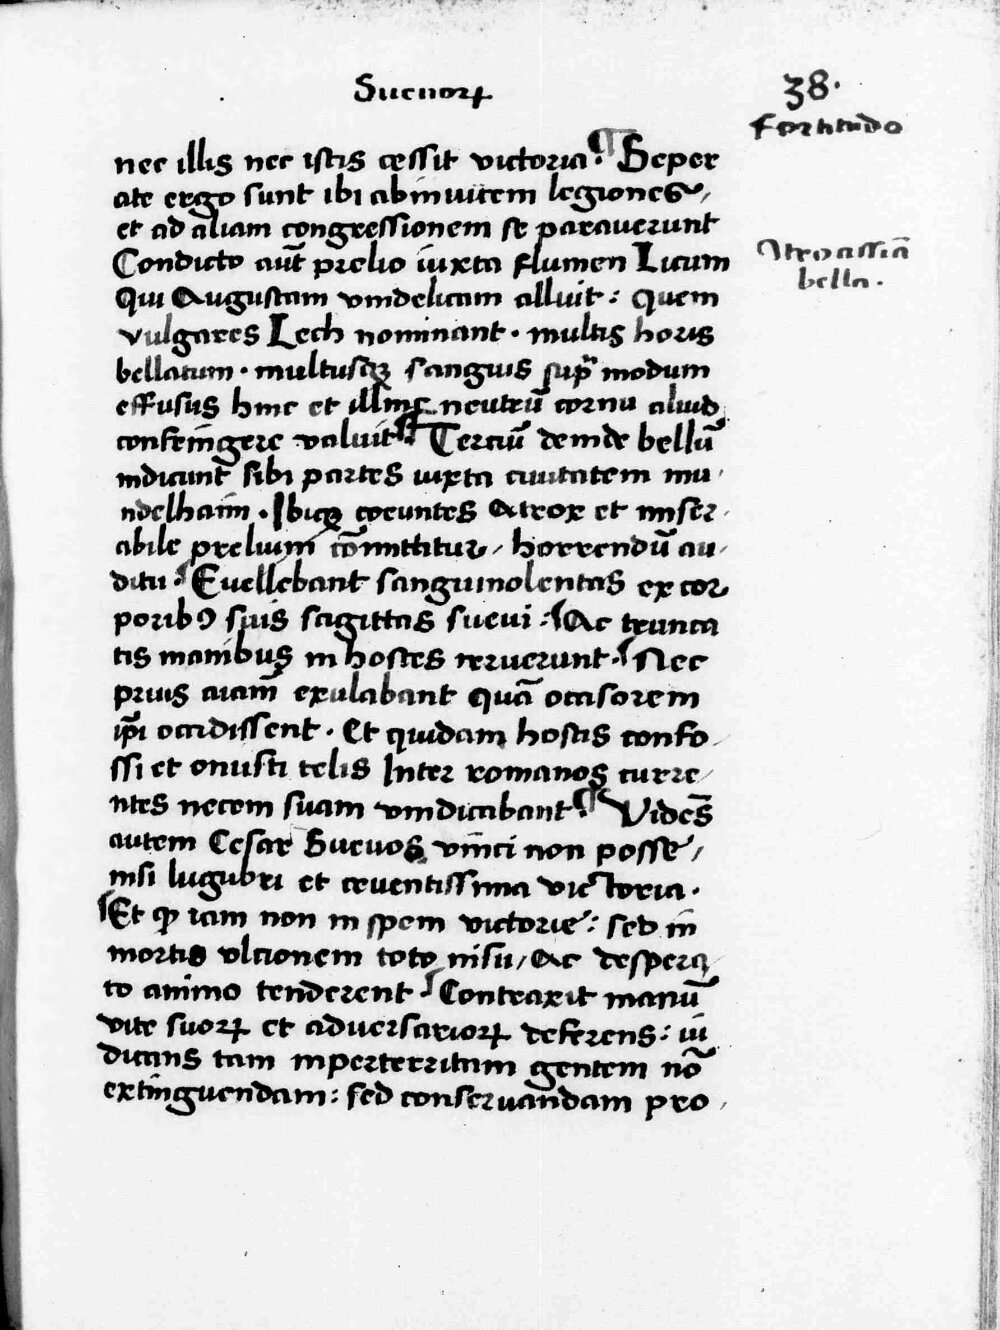 Sueuoꝝ
38.
fortitudo
nec illis nec istis cessit victoria. ¶ Seper
ate ergo sunt ibi abinuicem legiones,
et ad aliam congressionem se parauerunt
Condicto aut̄ prelio iuxta flumen Licum
Itroassiā
bella.
Qui Augustam vindelicam alluit: Quem
vulgares Lech nominant. multis horis
bellatum. multusqꝫ sanguis sup̄ modum
effusus hinc et illinc neutrū cornu aliud
confringere valuit ¶ Terciū deinde bellū
indicunt sibi partes iuxta ciuitatem mi
ndelhaim. Ibiqꝫ coeuntes Atrox et miser
abile prelium cōmittitur, horrendū au
ditu. Euellebant sanguinolentas ex cor
poribꝰ suis sagittas sueui: Ac trunca
tis manibus in hostes reruerunt. Nec
prius aīam exalabant quā occisorem
ip̄i occidissent. Et quidam hostis confo
ssi et onusti telis Inter romanos curre
ntes necem suam vindicabant. ¶ Videns̄
autem Cesar Sueuos vinci non posse,
nisi lugubri et cruentissima victoria.
Et ꝙ iam non in spem victorie: sed in
mortis vlcionem toto nisu, Ac despera
to animo tenderent. Contraxit manū
vite suoꝝ et aduersarioꝝ deferens: iu
dicans tam inperterritam gentem nō
extinguendam: sed conseruandam pro